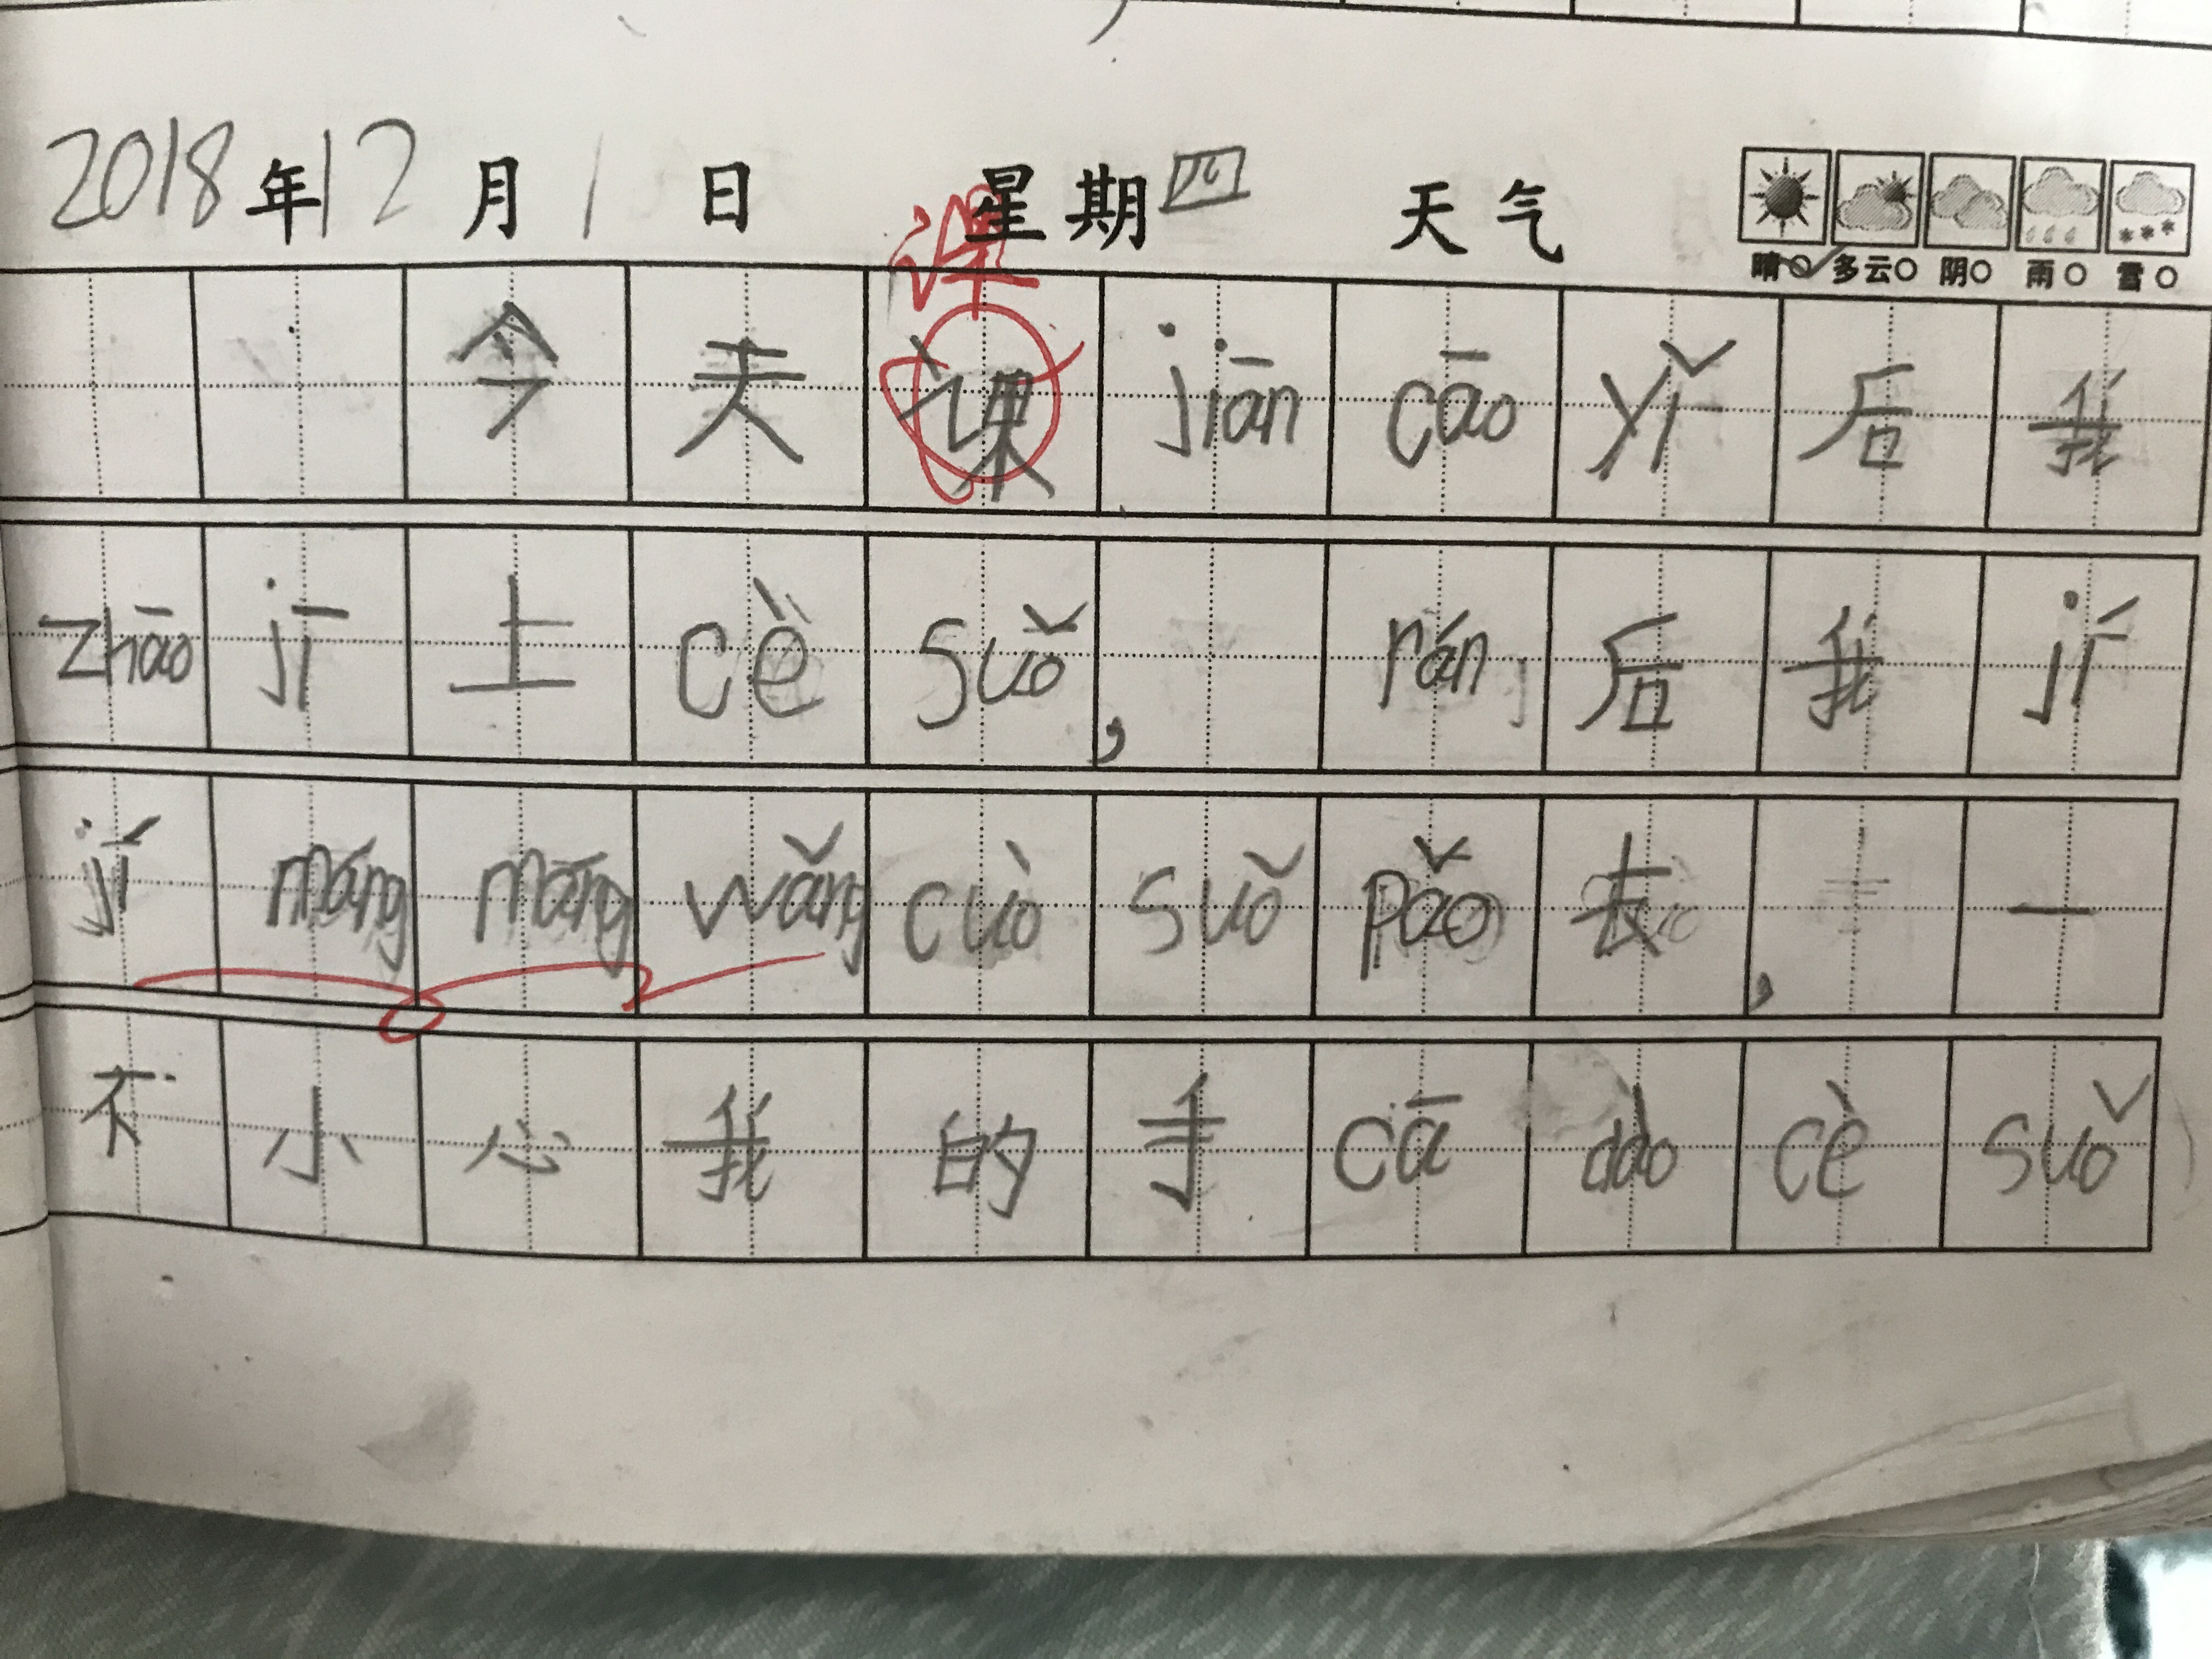 2018年12月1日 星期四 天气 晴 多云 阴 雨 雪
课
今天课jiān cāo yǐ后我
zhāo jī上cè suǒ, rán后我jí
jí máng māng wǎng cuò suǒ pǎo去,一
不小心我的手cā dào cè suǒ